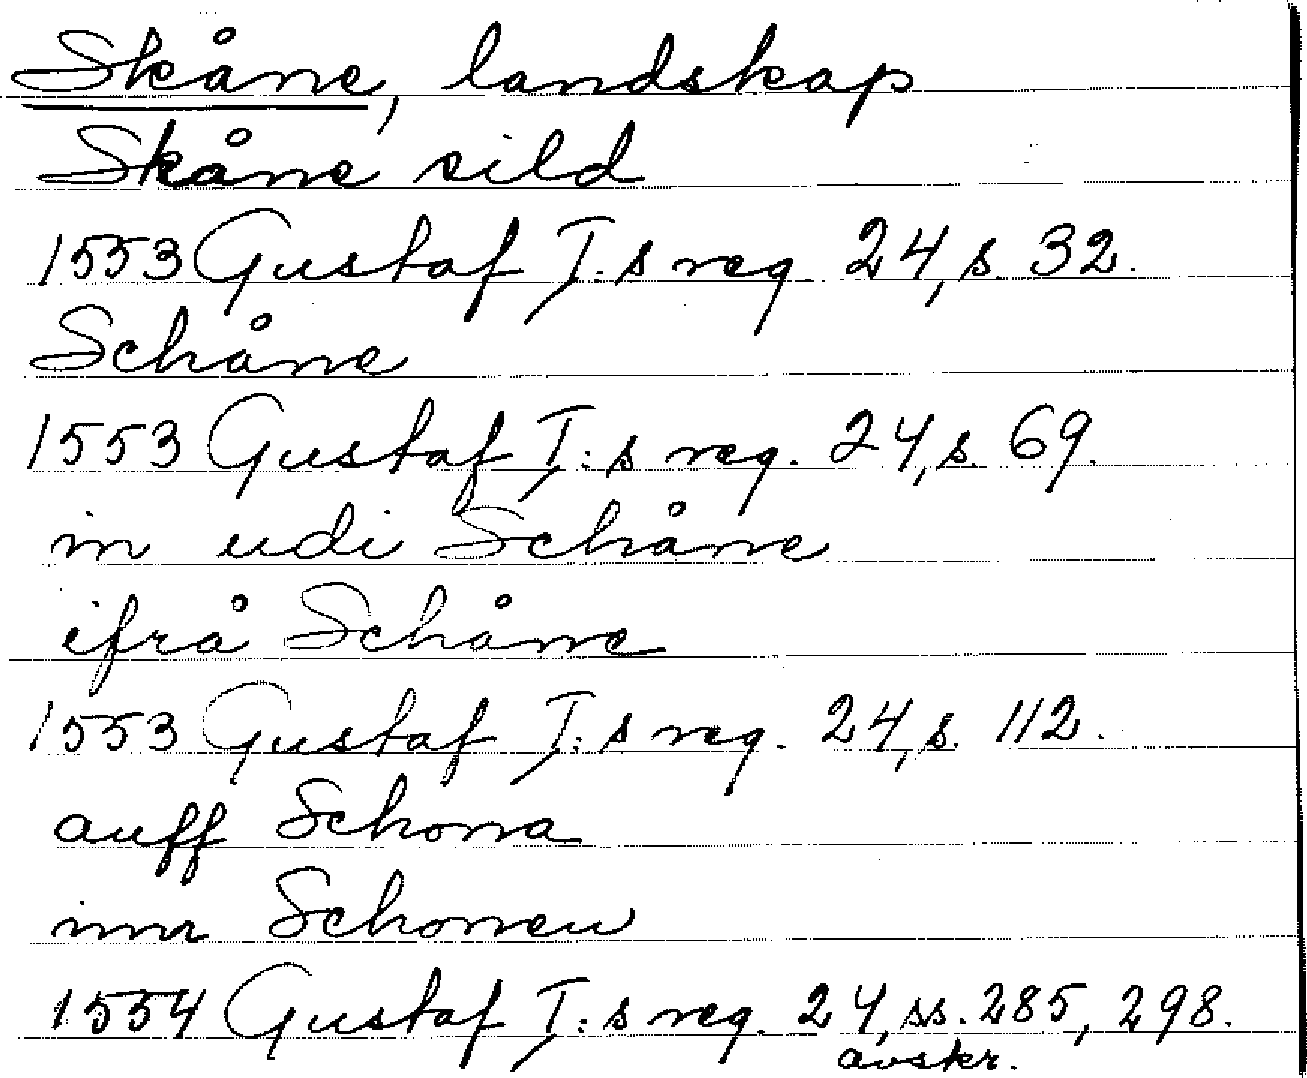 Skåne, landskap
Skåne sild
1553 Gustaf I:s reg. 24, s. 32.
Schåne
1553 Gustaf I:s reg. 24, s. 69.
in udi Schåne
ifrå Schåne
1553 Gustaf I:s reg. 24, s. 112.
auff Schona
inn Schonen
1554 Gustaf I:s reg. 24, ss. 285, 298.
avskr.